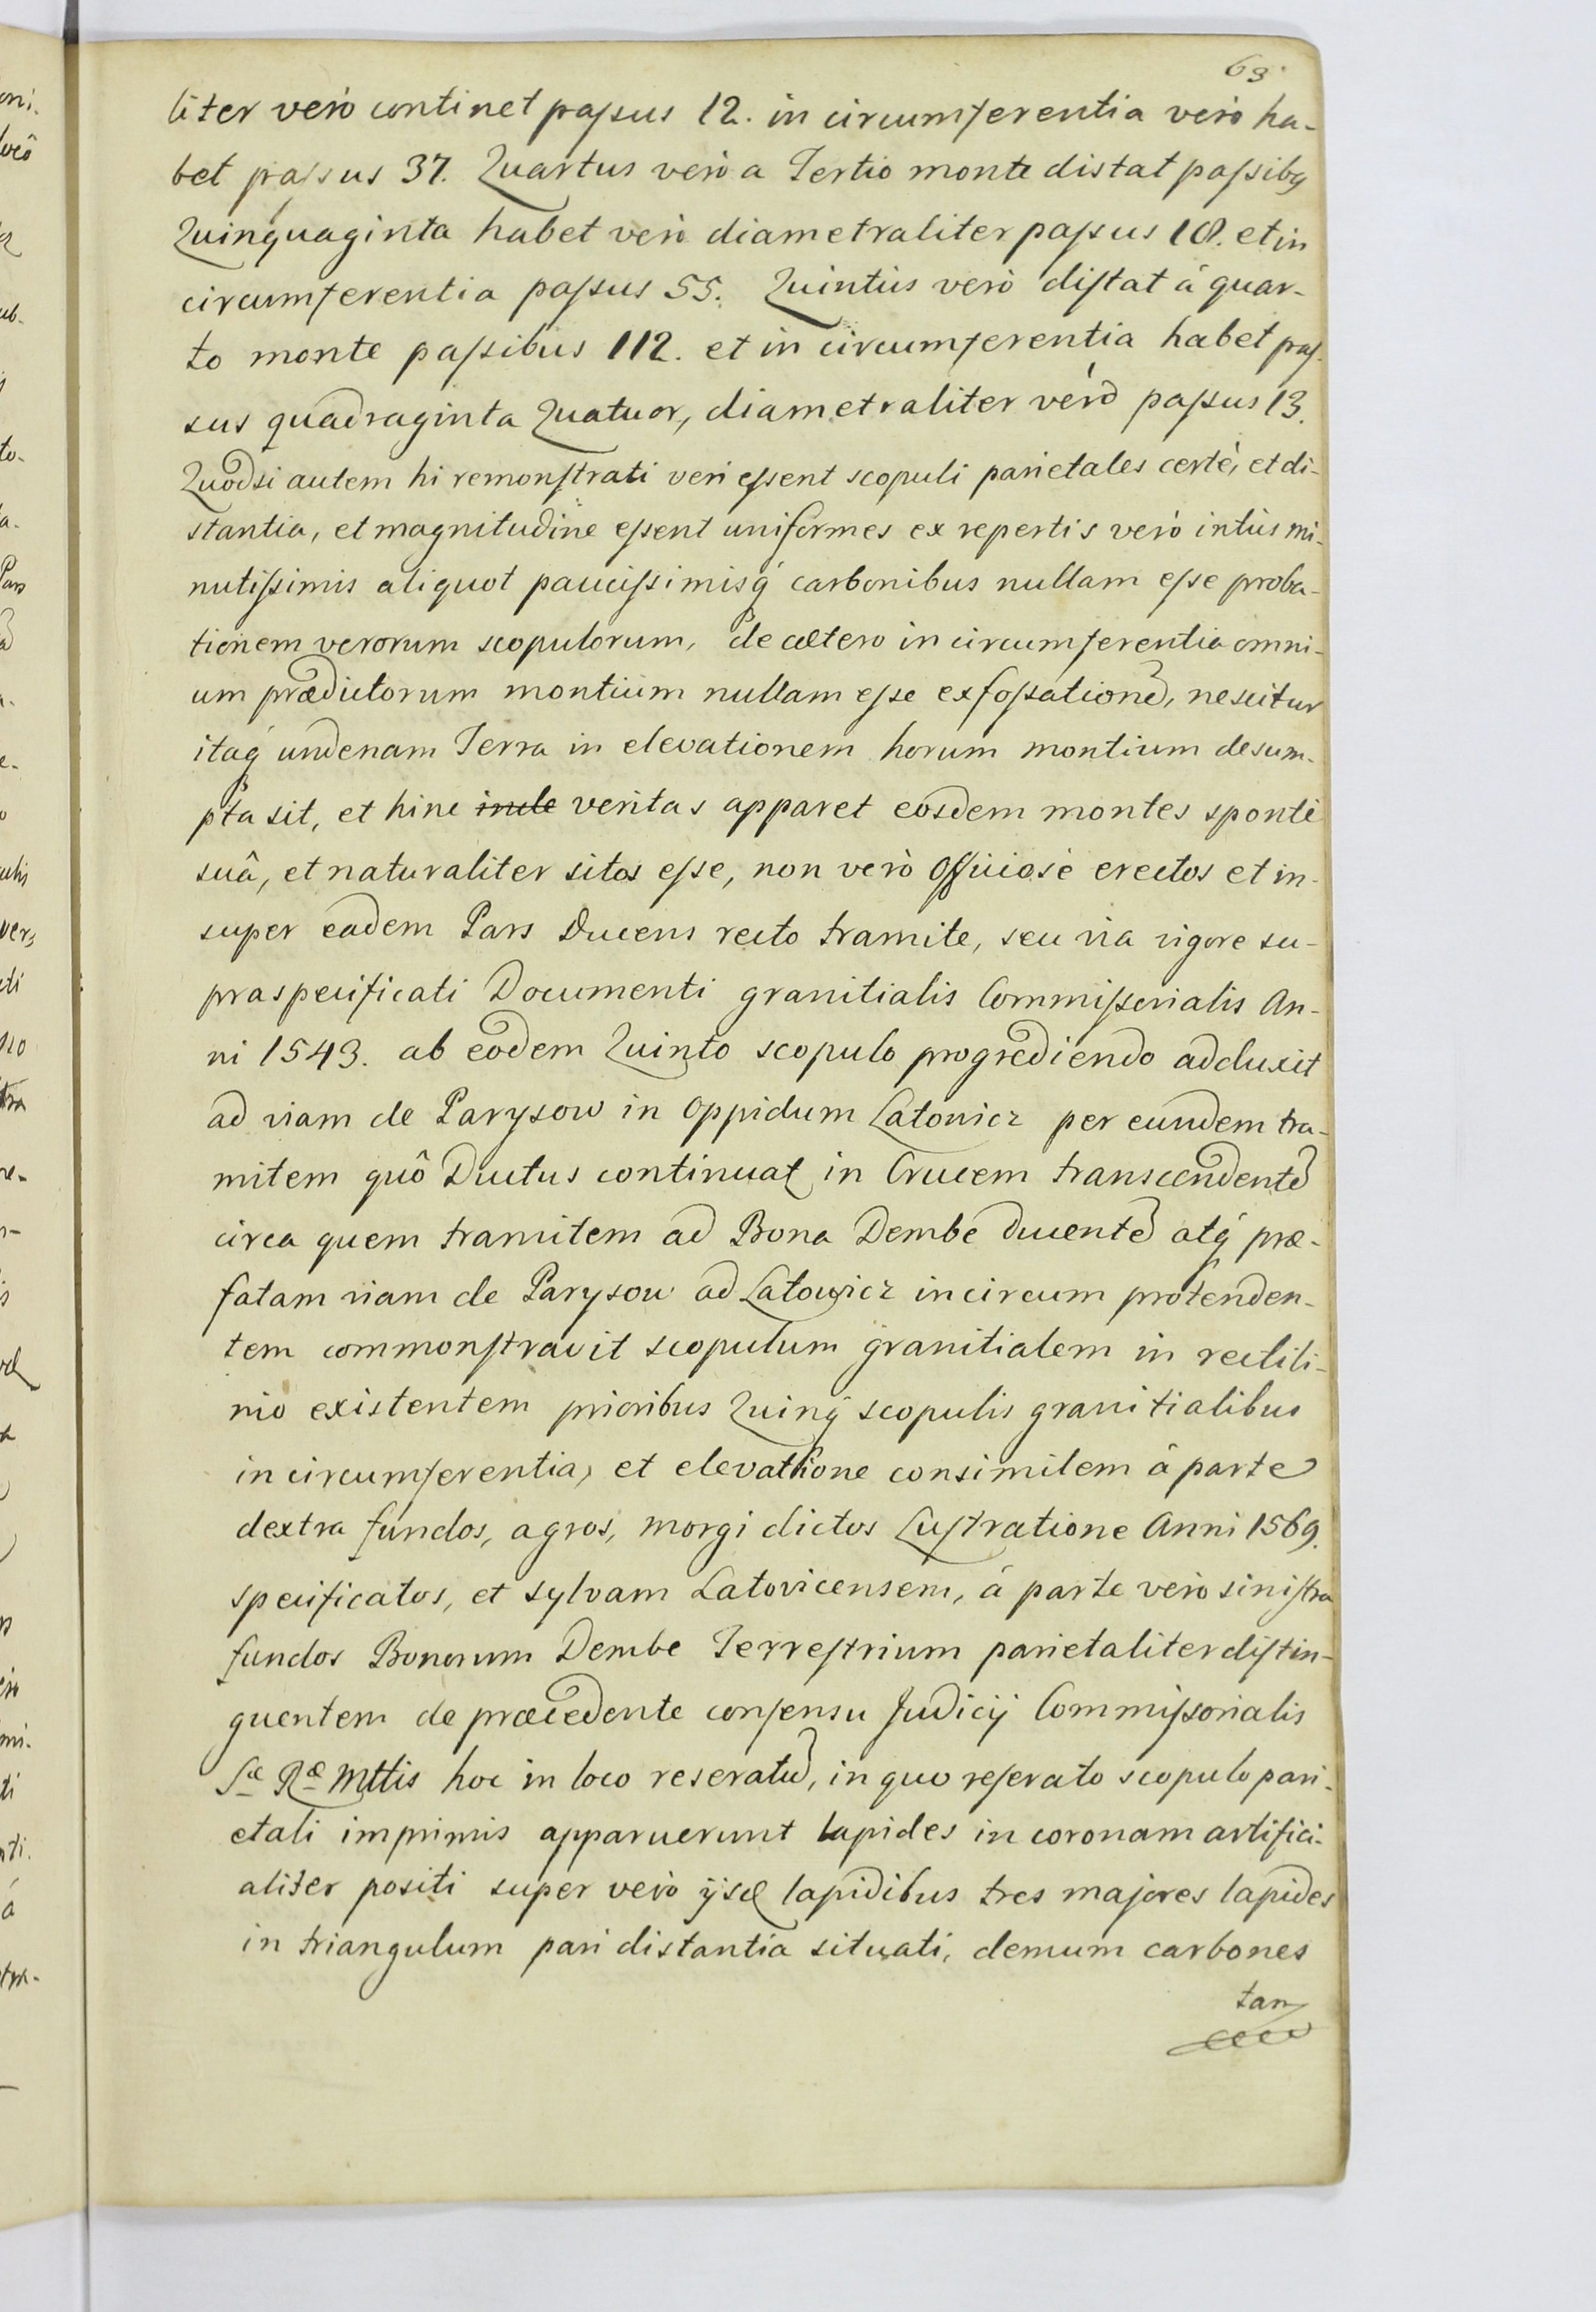 63.
liter verò continet paſsus 12. in circumferentia verò ha-
bet paſsus 37. Quartus verò a Tertio monte distat paſsibq
Quinquaginta habet verò diametraliter paſsus 18. et in
circumferentia paſsus 55. Quintus verò diſtat á quar-
to monte paſsibus 112. et in circumferentia habet paſ-
sus quadraginta Quatuor, diametraliter verò paſsus 13.
Quodsi autem hi remonſtrati veri eſsent scopuli parietales certè, et di-
stantia, et magnitudine eſsent uniformes ex repertis verò intùs mi-
nutiſsimis aliquot pauciſsimisq́ carbonibus nullam eſse proba-
tionem verorum scopulorum, de cætero in circumferentia omni-
um prædictorum montium nullam eſse exfoſsationẽ, nescitur
itaq́ undenam Terra in elevationem horum montium desum-
pta sit, et hinc inde veritas apparet eosdem montes spontè
suâ, et naturaliter sitos eſse, non verò Officiosè erectos et in-
super eadem Pars Ducens recto tramite, seu via vigore su-
praspecificati Documenti granitialis Commiſsorialis An-
ni 1543. ab eodem Quinto scopulo progrediendo adduxit
ad viam de Parysow in Oppidum Latowicz per eundem tra-
mitem quô Ductus continuat in Crucem transcendentẽ
circa quem tramitem ad Bona Dembe ducentẽ atq́ præ-
fatam viam de Parysow ad Latowicz incircum protenden-
tem commonſtravit scopulum granitialem in rectili-
nio existentem prioribus Quinq́ scopulis granitialibus
in circumferentia, et elevatione consimilem á parte
dextra fundos, agros, morgi dictos Luſtratione Anni 1569.
specificatos, et sylvam Latovicensem, á parte verò siniſtra
fundos Bonorum Dembe Terreſtrium parietaliter diſtin-
guentem de præcedente conſensu Judicij Commiſsorialis
Sæ Ræ Mttis hoc in loco reseratũ, in quo reſerato scopulo pari-
etali imprimis apparuerunt lapides in coronam artifici-
aliter positi super verò ijsd lapidibus tres majores lapides
in triangulum pari distantia situati, demum carbones
tan